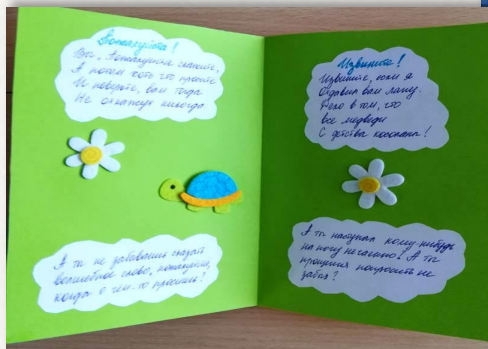 Пожалуйста!
Вы, Пожалуйста скажите,
А потом хоть что просите
И поверьте, вам тогда
Не откажут никогда
А ты не забываешь сказать
волшебное слово, пожалуйста,
когда о чем-то просишь?
Извините!
Извините, если я
Отдавил вам лапу.
Дело в том, что
все медведи
С детства косолапы!
А ты наступал кому-нибудь
на ногу нечаянно? А ты
прощения попросить не
забыл?